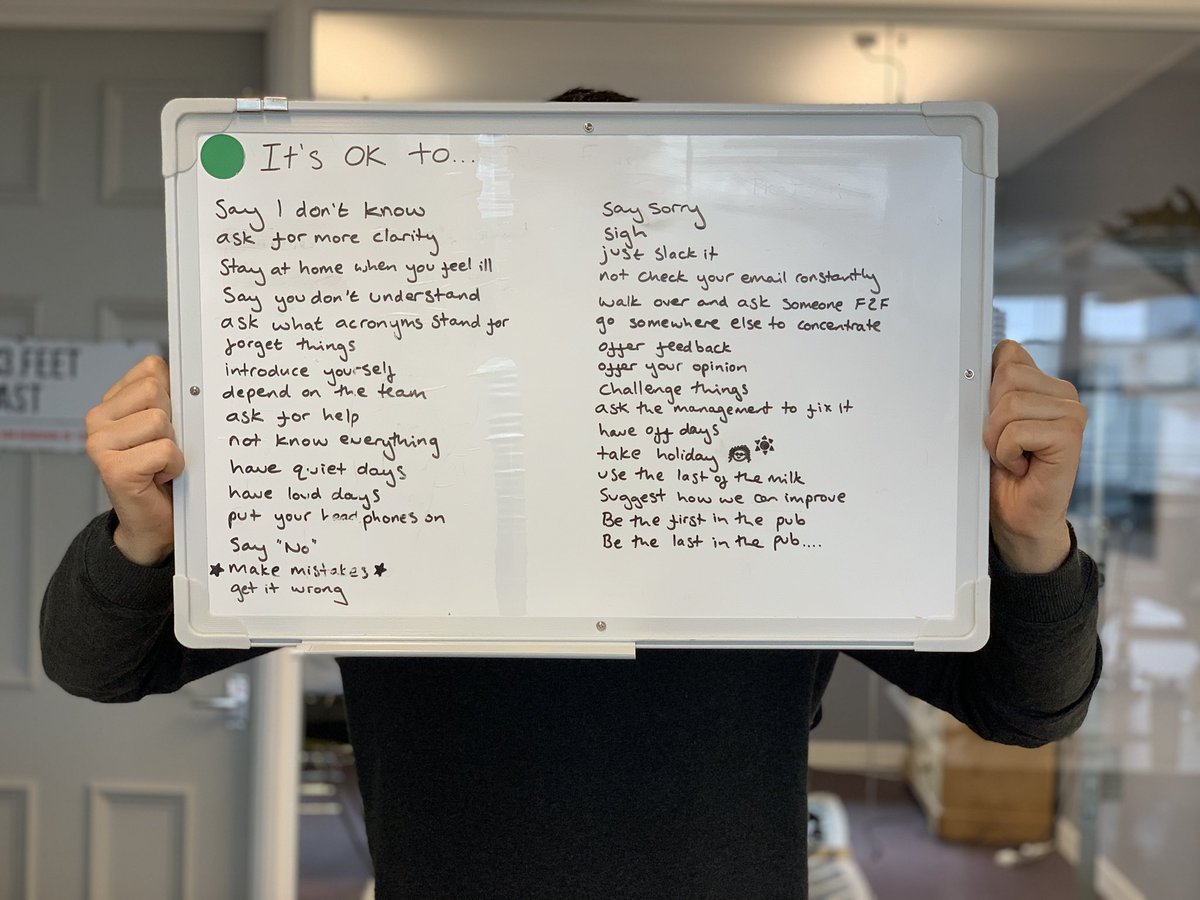 It's OK to...
Say I don't know
ask for more clarity
Stay at home when you feel ill
Say you don't understand
ask what acronyms stand for
forget things
introduce yourself
depend on the team
ask for help
not know everything
have quiet days
have loud days
put your headphones on
Say "No"
★make mistakes★
get it wrong
Say Sorry
Sigh
just Slack it
not check your email constantly
walk over and ask someone F2F
go somewhere else to concentrate
offer feedback
offer your opinion
Challenge things
ask the management to fix it
have off days
take holiday
use the last of the milk
Suggest how we can improve
Be the first in the pub
Be the last in the pub....
3 FEET
AST